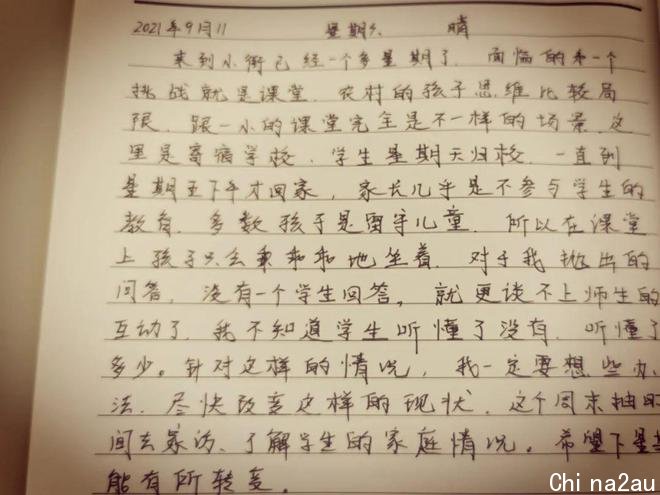 2021年9月11 星期六 晴
来到小街已经一个多星期了。面临的第一个
挑战就是课堂。农村的孩子思维比较局
限，跟一小的课堂完全是不一样的场景，这
里是寄宿学校，学生星期天归校，一直到
星期五下午才回家，家长几乎是不参与学生的
教育，多数孩子是留守儿童，所以在课堂
上孩子只会乖乖地坐着，对于我抛出的
问答，没有一个学生回答，就更谈不上师生的
互动了，我不知道学生听懂了没有，听懂了
多少。针对这样的情况，我一定要想些办
法，尽快改变这样的现状，这个周末抽时
间去家访、了解学生的家庭情况。希望下星
能有所转变。
China2au